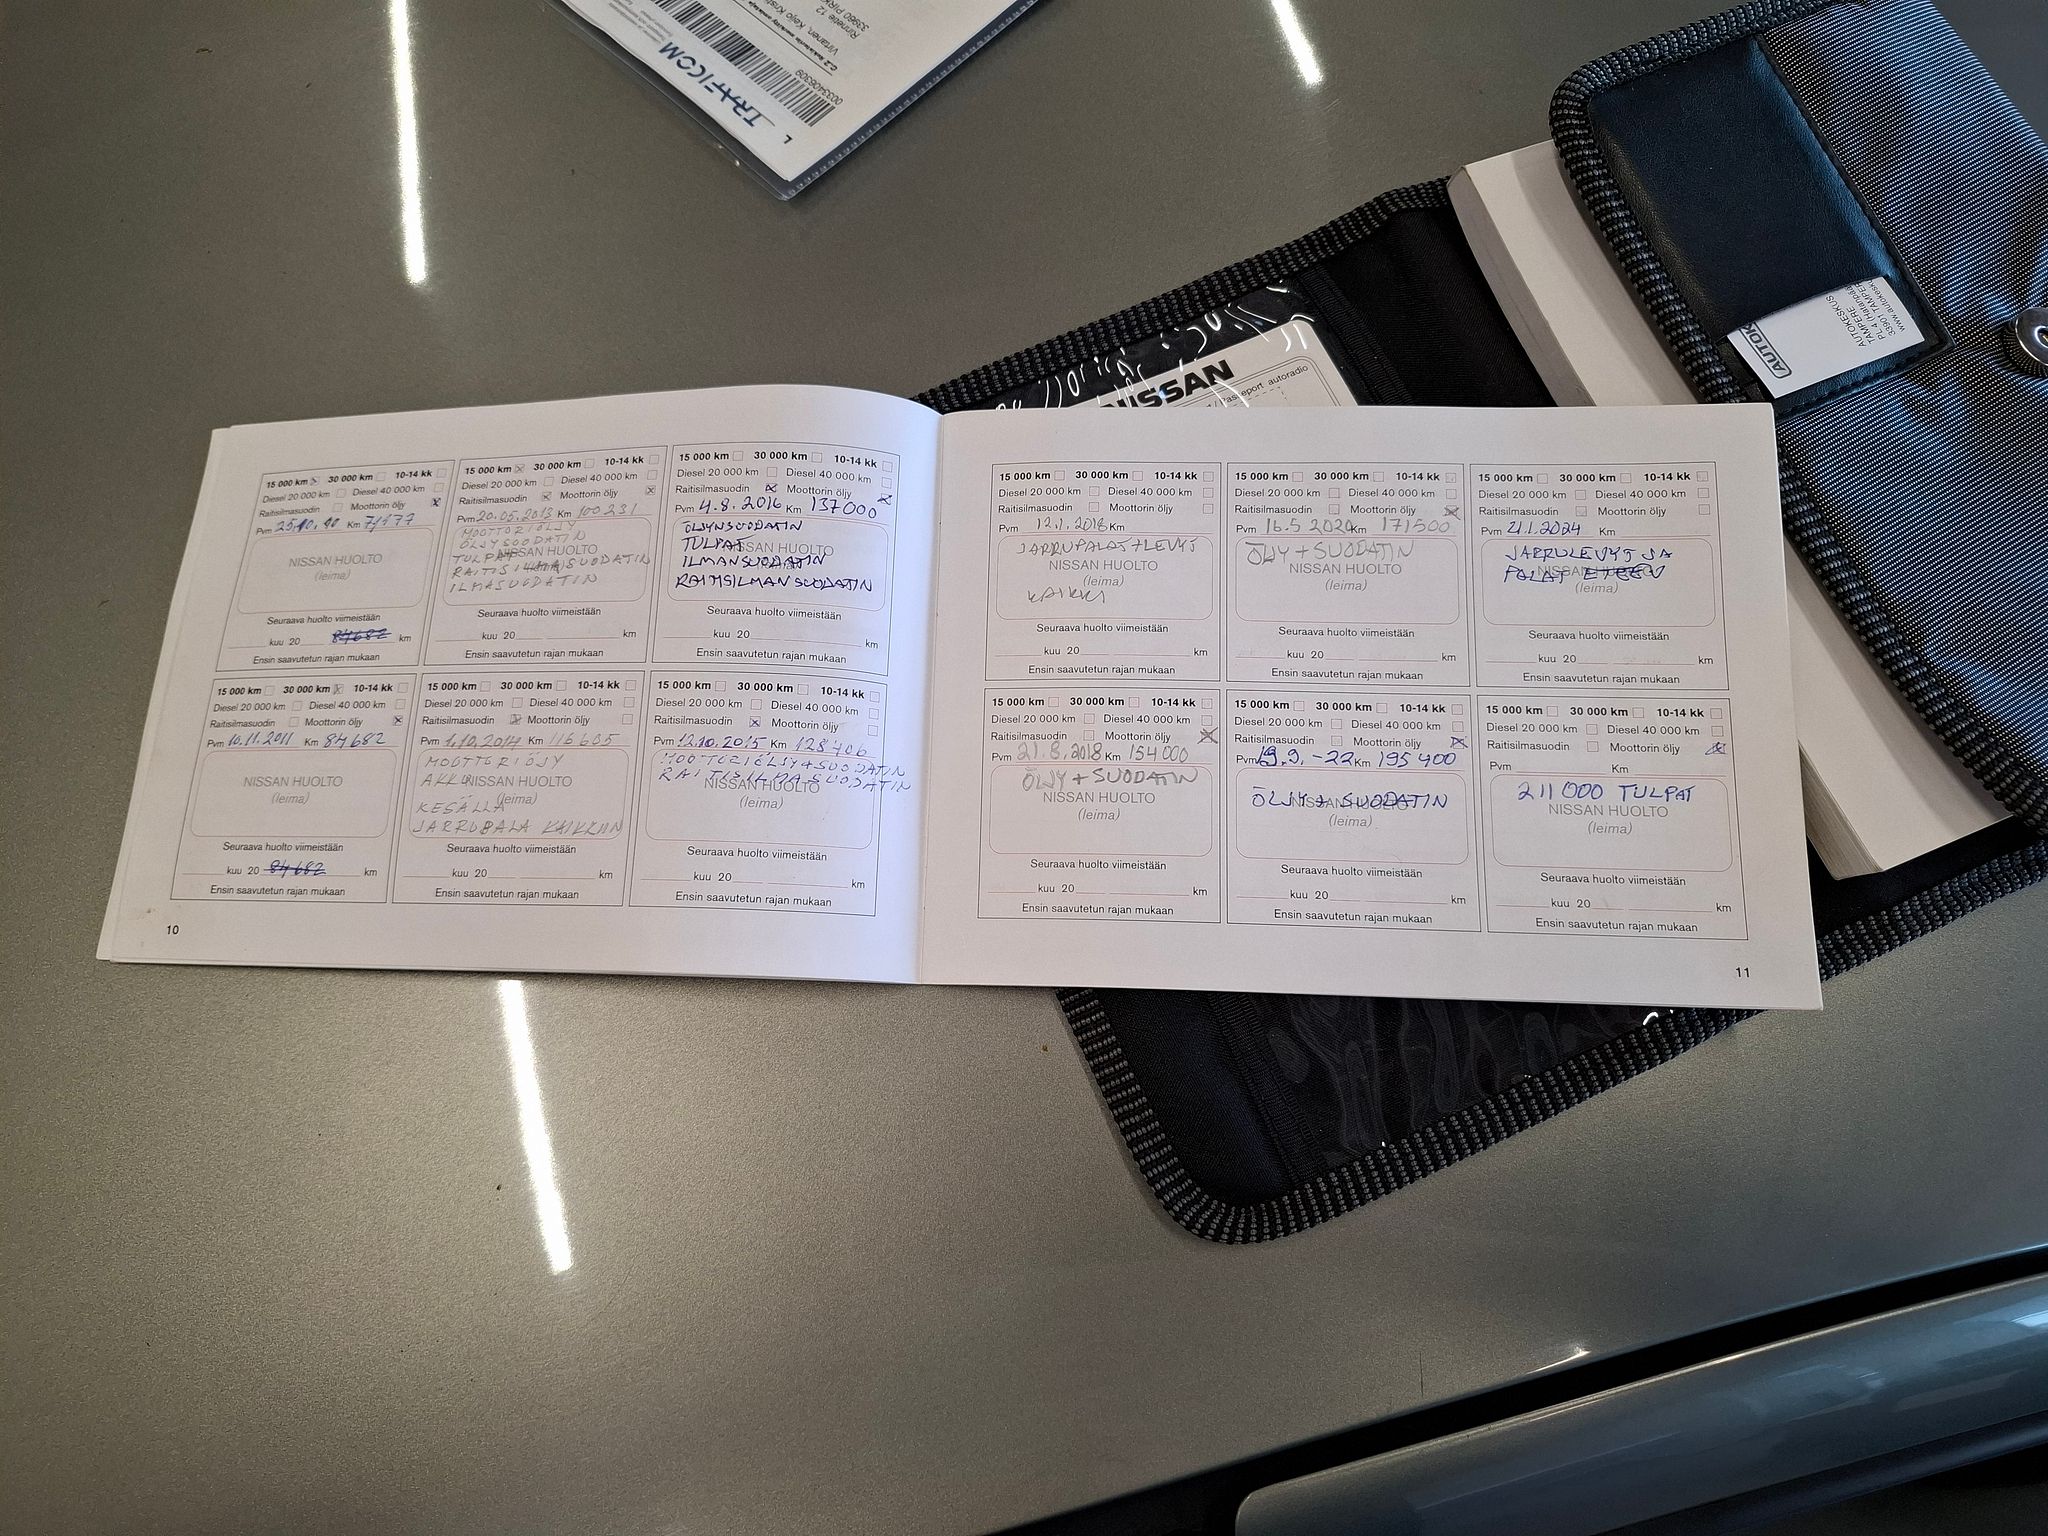 TRAFICOM
0033406309
Virtanen, Keijo Kristi
Rinnetie 12
L
NISSAN
Passeport autoradio
AUTOKESKUS
TAMPERE
PL 4 (Hatanpää
33901 TAMPE
AUTOK
15 000 km 30 000 km 10-14 kk
Diesel 20 000 km Diesel 40 000 km
Raitisilmasuodin Moottorin öljy
Pvm Km 74177
NISSAN HUOLTO
(leima)
Seuraava huolto viimeistään
kuu 20 84682 km
Ensin saavutetun rajan mukaan
15 000 km 30 000 km 10-14 kk
Diesel 20 000 km Diesel 40 000 km
Raitisilmasuodin Moottorin öljy
Pvm 20.05.2013 Km 100231
MOOTTORIÖLJY
ÖLJYSUODATIN
TULPAT
NISSAN HUOLTO
RAITISILMASUODATIN
(leima)
ILMASUODATIN
Seuraava huolto viimeistään
kuu 20 km
Ensin saavutetun rajan mukaan
15 000 km 30 000 km 10-14 kk
Diesel 20 000 km Diesel 40 000 km
Raitisilmasuodin Moottorin öljy
Pvm 4.8.2016 Km 137000
ÖLJYNSUODATIN
TULPAT
NISSAN HUOLTO
ILMANSUODATIN
(leima)
RAITISILMANSUODATIN
Seuraava huolto viimeistään
kuu 20 km
Ensin saavutetun rajan mukaan
15 000 km 30 000 km 10-14 kk
Diesel 20 000 km Diesel 40 000 km
Raitisilmasuodin Moottorin öljy
Pvm 10.11.2011 Km 84682
NISSAN HUOLTO
(leima)
Seuraava huolto viimeistään
kuu 20 84682 km
Ensin saavutetun rajan mukaan
15 000 km 30 000 km 10-14 kk
Diesel 20 000 km Diesel 40 000 km
Raitisilmasuodin Moottorin öljy
Pvm 1.10.2014 Km 116605
MOOTTORIÖJY
AKKU
NISSAN HUOLTO
(leima)
KESÄLLÄ
JARRUPALA KAIKKIIN
Seuraava huolto viimeistään
kuu 20 km
Ensin saavutetun rajan mukaan
15 000 km 30 000 km 10-14 kk
Diesel 20 000 km Diesel 40 000 km
Raitisilmasuodin Moottorin öljy
Pvm 12.10.2015 Km 128406
MOOTTORIÖLJY+SUODATIN
RAITISILMASUODATIN
NISSAN HUOLTO
(leima)
Seuraava huolto viimeistään
kuu 20 km
Ensin saavutetun rajan mukaan
10
15 000 km 30 000 km 10-14 kk
Diesel 20 000 km Diesel 40 000 km
Raitisilmasuodin Moottorin öljy
Pvm 12.1.2018 Km
JARRUPALAT+LEVYT
NISSAN HUOLTO
(leima)
KAIKKI
Seuraava huolto viimeistään
kuu 20 km
Ensin saavutetun rajan mukaan
15 000 km 30 000 km 10-14 kk
Diesel 20 000 km Diesel 40 000 km
Raitisilmasuodin Moottorin öljy
Pvm 16.5 2020 Km 171500
ÖLJY + SUODATIN
NISSAN HUOLTO
(leima)
Seuraava huolto viimeistään
kuu 20 km
Ensin saavutetun rajan mukaan
15 000 km 30 000 km 10-14 kk
Diesel 20 000 km Diesel 40 000 km
Raitisilmasuodin Moottorin öljy
Pvm 21.1.2024 Km
JARRULEVYT JA
PALAT ETEEN
NISSAN HUOLTO
(leima)
Seuraava huolto viimeistään
kuu 20 km
Ensin saavutetun rajan mukaan
15 000 km 30 000 km 10-14 kk
Diesel 20 000 km Diesel 40 000 km
Raitisilmasuodin Moottorin öljy
Pvm 21.8.2018 Km 154000
ÖLJY + SUODATIN
NISSAN HUOLTO
(leima)
Seuraava huolto viimeistään
kuu 20 km
Ensin saavutetun rajan mukaan
15 000 km 30 000 km 10-14 kk
Diesel 20 000 km Diesel 40 000 km
Raitisilmasuodin Moottorin öljy
Pvm 19.9.-22 Km 195400
ÖLJY+SUODATIN
NISSAN HUOLTO
(leima)
Seuraava huolto viimeistään
kuu 20 km
Ensin saavutetun rajan mukaan
15 000 km 30 000 km 10-14 kk
Diesel 20 000 km Diesel 40 000 km
Raitisilmasuodin Moottorin öljy
Pvm Km
211000 TULPAT
NISSAN HUOLTO
(leima)
Seuraava huolto viimeistään
kuu 20 km
Ensin saavutetun rajan mukaan
11